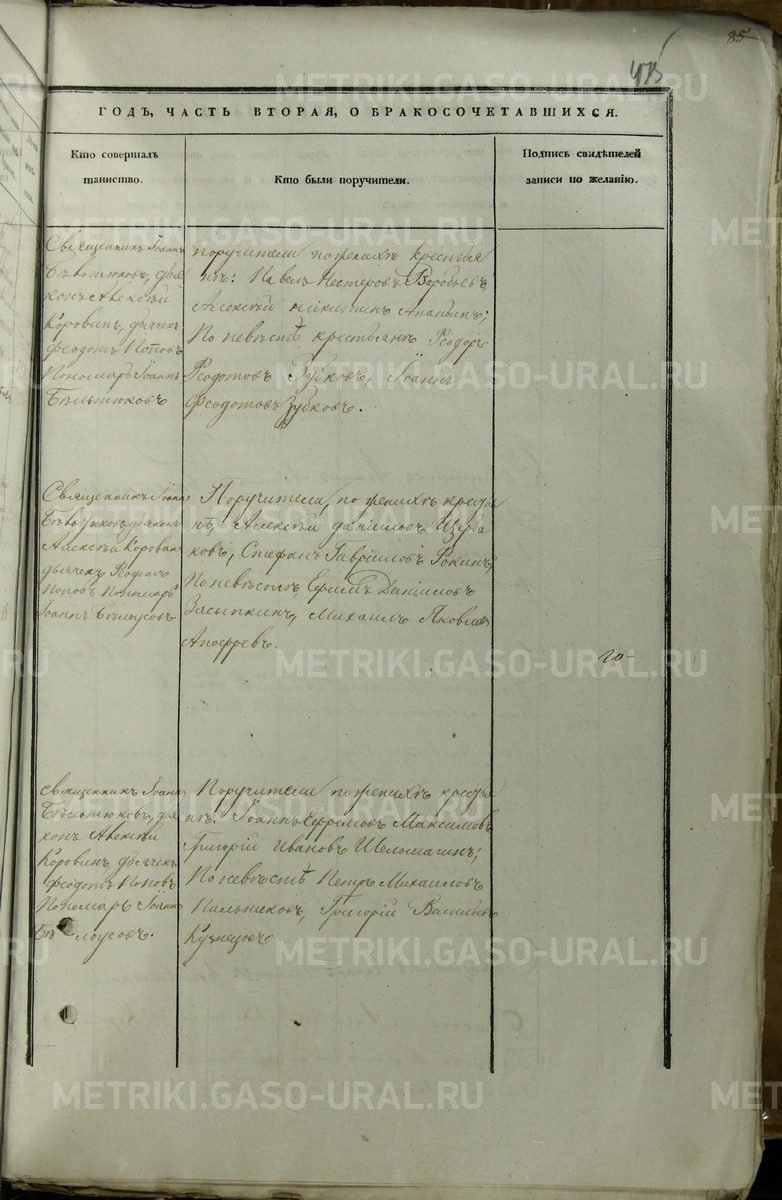 85
475
ГОДЪ, ЧАСТЬ ВТОРАЯ, О БРАКОСОЧЕТАВШИХСЯ.
Кто совершалъ
таинство.
Кто были поручители.
Подпись свидѣтелей
записи по желанію.
Священникъ Іоаннъ
дья
конъ Алексѣй
Коровинъ, дьячекъ
Феодотъ Поповъ
Пономарь Іоаннъ
поручители по женихѣ крестья
нѣ: Павелъ Нестеровъ Воробьевъ,
Алексѣй
По невѣстѣ крестьяне Ѳеодоръ
Ѳеодотовъ Зубковъ, Іоаннъ
Феодотовъ Зубковъ.
Священникъ Іоаннъ
дьяконъ
Алексѣй Корован
дьячекъ Ѳеодотъ
Поповъ Пономарь
Іоаннъ Бѣлоусовъ
Поручители, по женихѣ крестья
нѣ, Алексѣй Даніиловъ Щерба
ковъ, Стефанъ Гавріиловъ Фокинъ;
По невѣстѣ, Ефимъ Даніиловъ
Засыпкинъ, Михаилъ Яковлевъ
священникъ Іоаннъ
дья
конъ Алексѣй
Коровинъ, дьячекъ
Феодотъ Поповъ
Пономарь Іоаннъ
Бѣлоусовъ.
Поручители по женихѣ крестья
нѣ: Іоаннъ Ефремовъ Максимовъ
Григорій Ивановъ Шеломагинъ;
По невѣстѣ Петръ Михаиловъ
Пильниковъ, Григорій Васильевъ
Кузнецовъ.
METRIKI.GASO-URAL.RU